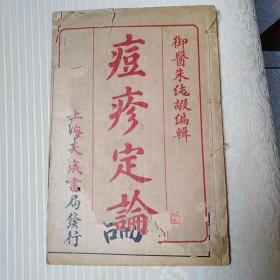 御醫朱純嘏編輯
痘疹定論
上海大成書局發行